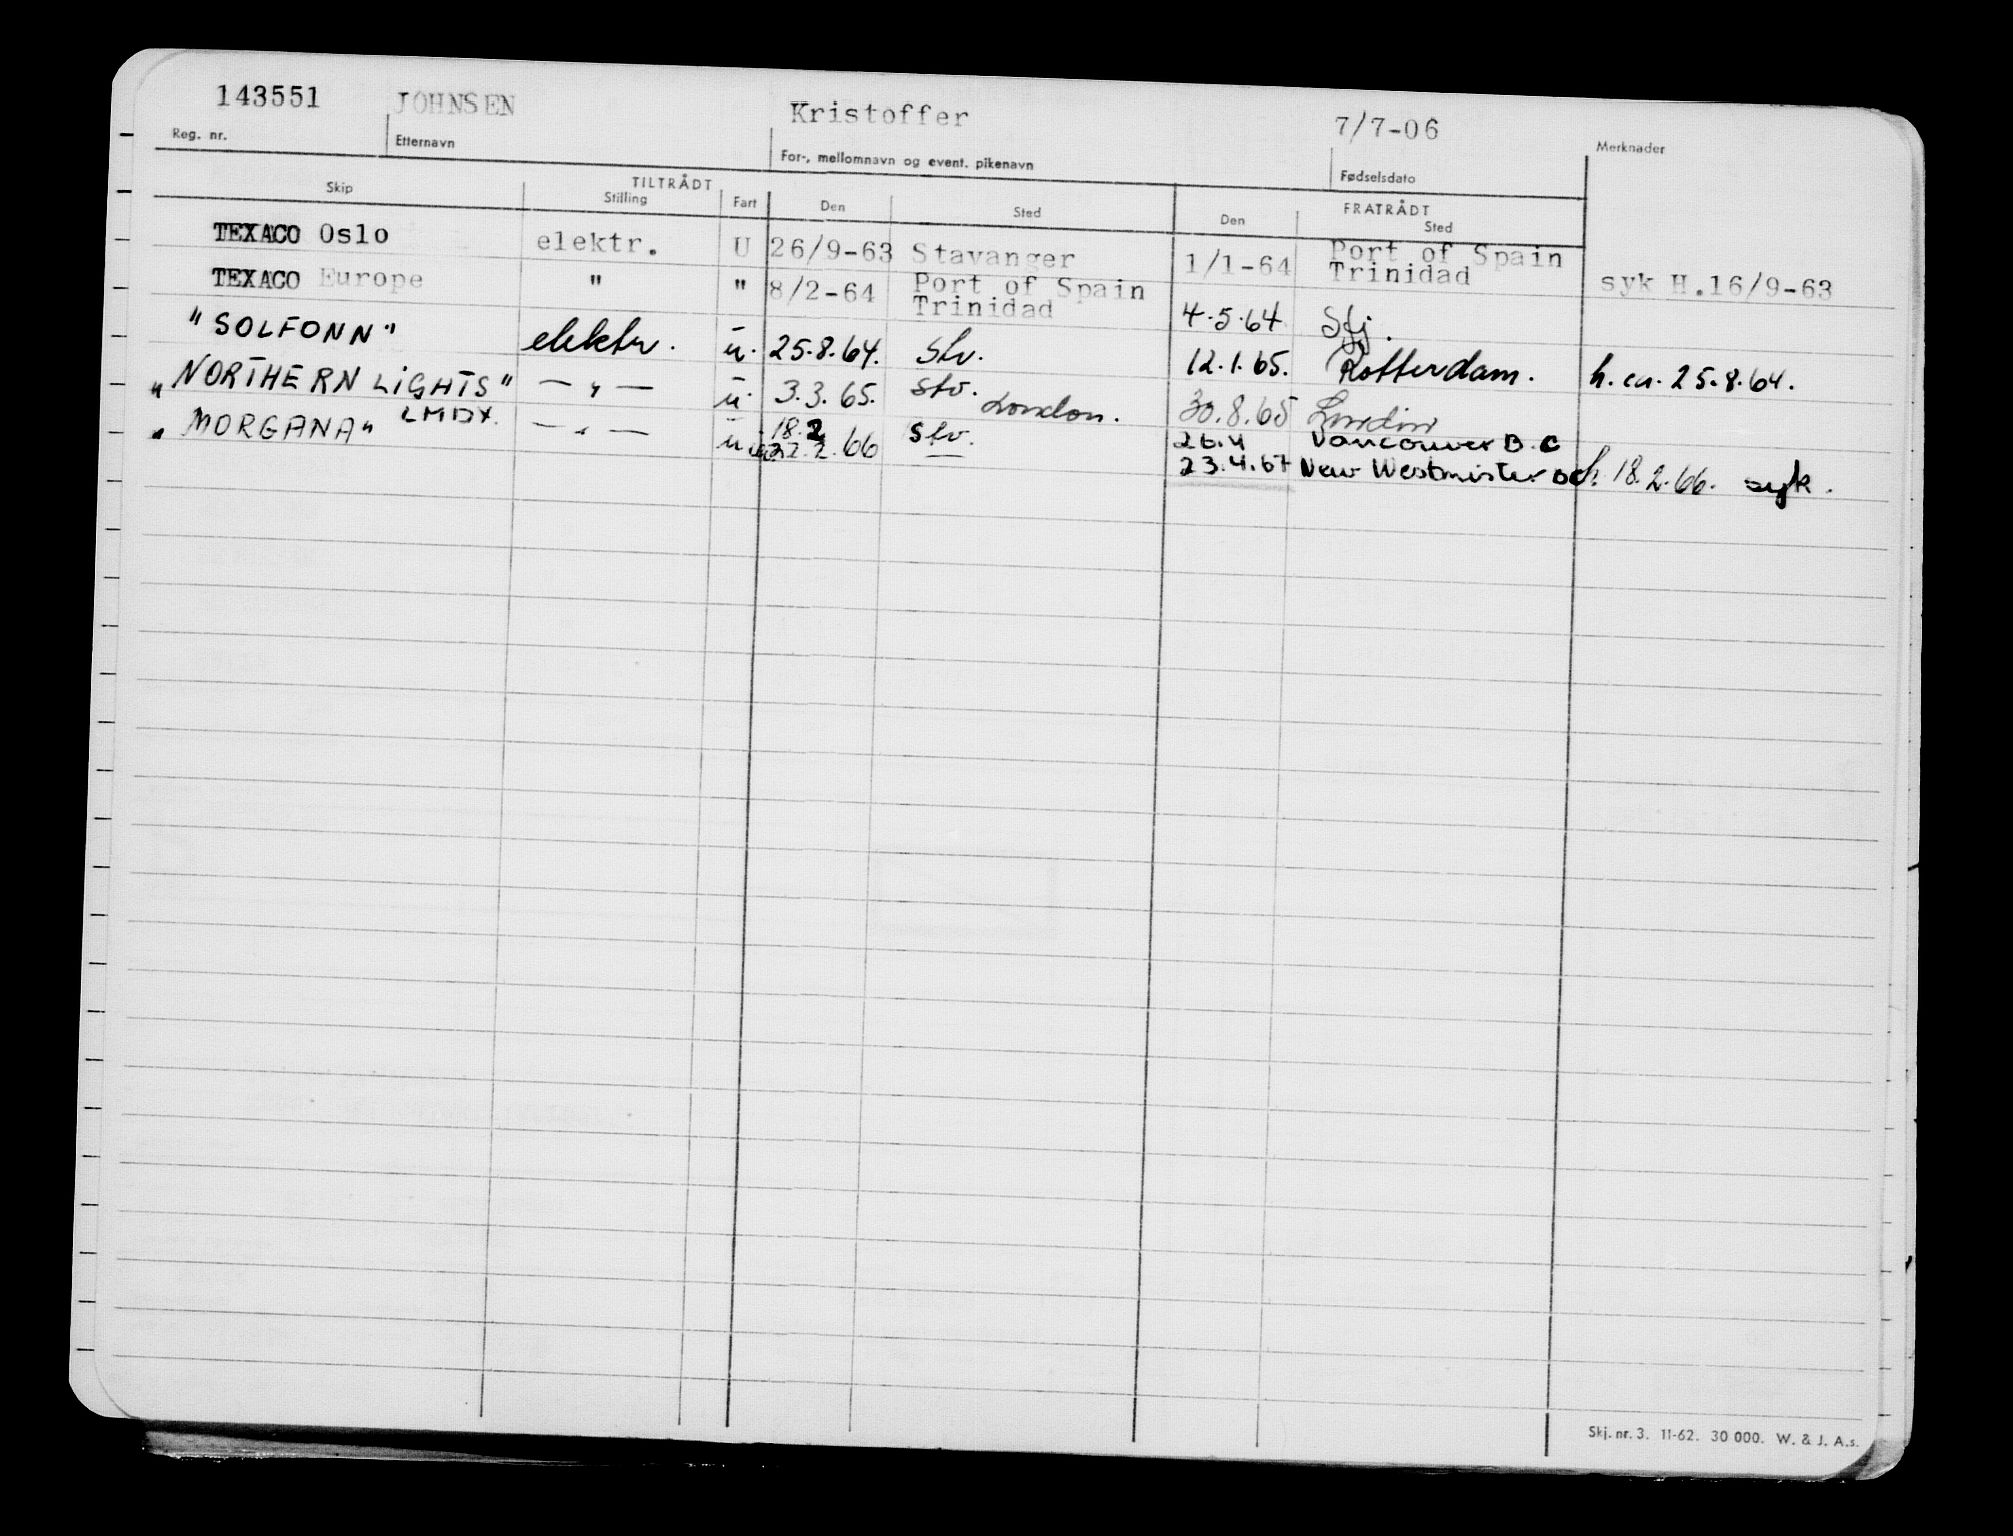 143551 JOHNSEN Kristoffer 7/7-06
Reg. nr. Etternavn For-, mellomnavn og event. pikenavn Fødselsdato Merknader
TILTRÅDT FRATRÅDT
Skip Stilling Fart Den Sted Den Sted
TEXACO Oslo elektr. U 26/9-63 Stavanger 1/1-64 Port of Spain
Trinidad
TEXACO Europe " " 8/2-64 Port of Spain syk H.16/9-63
Trinidad 4.5.64
"SOLFONN" elektr. u. 25.8.64. Stv. 12.1.65. Rotterdam. h. ca. 25.8.64.
"NORTHERN LIGHTS" — " — u. 3.3.65. Stv. London. 30.8.65 London
LMDX.
"MORGANA" — " — u. 18.2 66 Stv. 26.4 Vancouver B.C
23.4.67 New Westminster h. 18.2.66. syk.
Skj. nr. 3. 11-62. 30 000. W. & J. A.s.